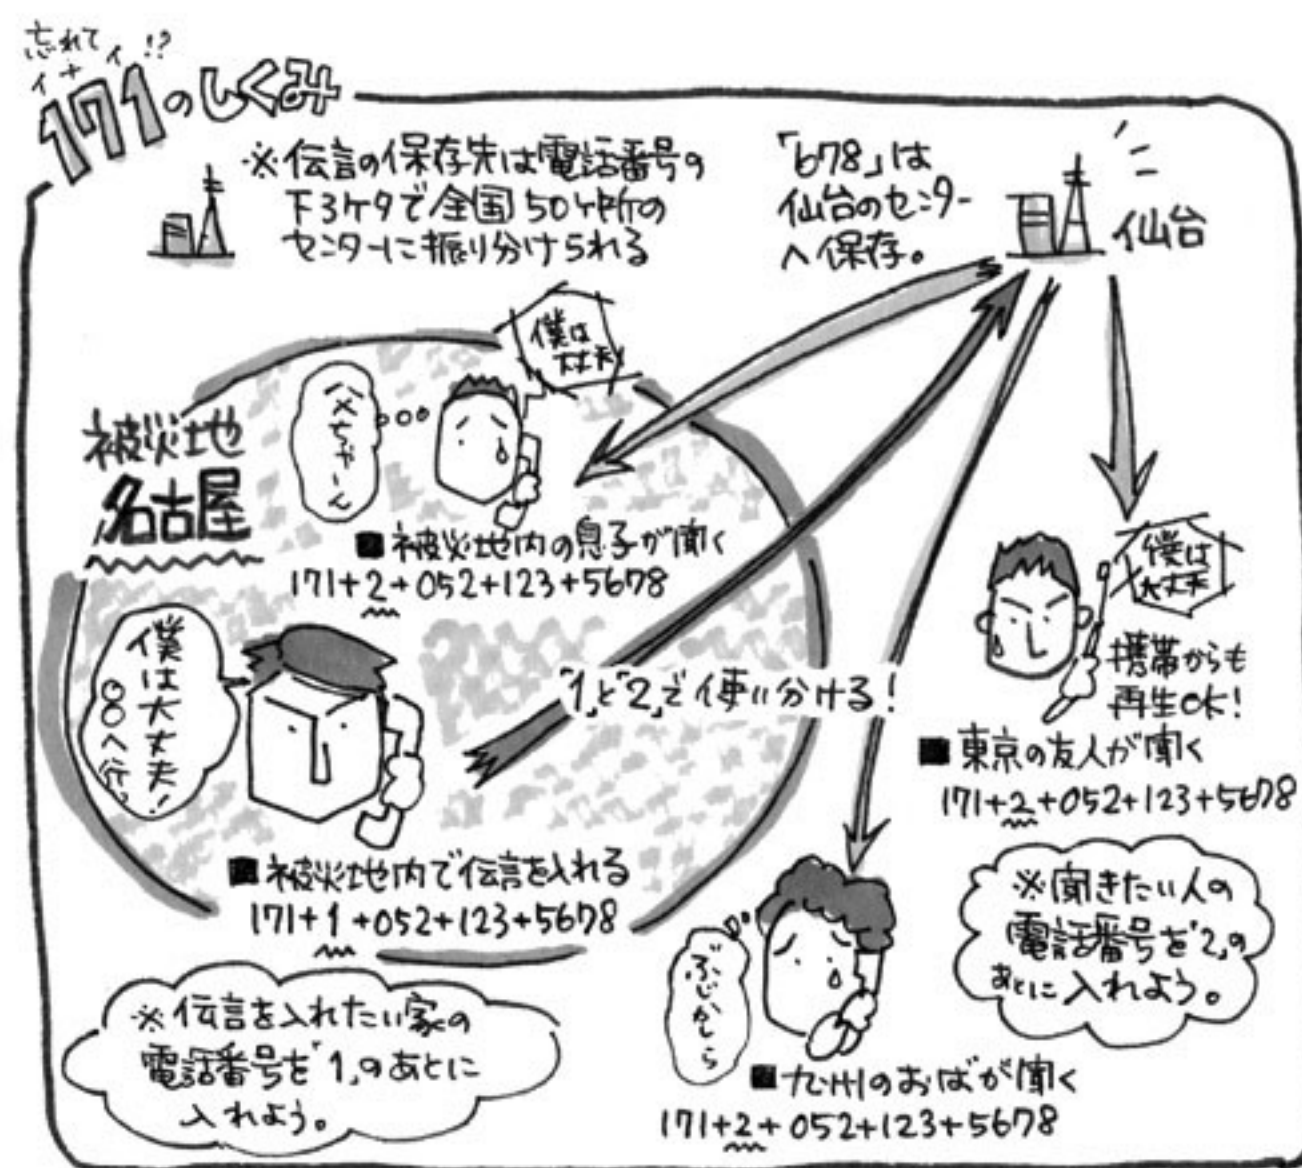 忘れて
イナイ!?
171のしくみ
※伝言の保存先は電話番号の
下3ケタで全国50ヶ所の
センターに振り分けられる
「678」は
仙台のセンター
へ保存。
仙台
被災地
名古屋
父ちゃーん
僕は
大丈夫
■被災地内の息子が聞く
171+2+052+123+5678
僕は大丈夫!
○○へ行
「1」と「2」で使い分ける!
■被災地内で伝言を入れる
171+1+052+123+5678
※伝言を入れたい家の
電話番号を「1」のあとに
入れよう。
僕は
大丈夫
携帯からも
再生OK!
■東京の友人が聞く
171+2+052+123+5678
※聞きたい人の
電話番号を「2」の
あとに入れよう。
ぶじかしら
■九州のおばが聞く
171+2+052+123+5678